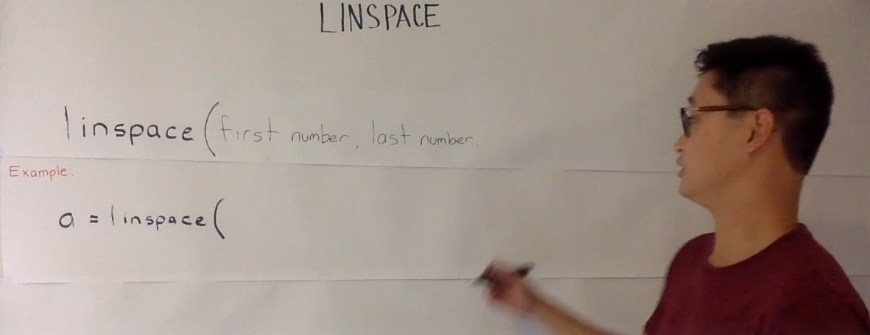 LINSPACE
linspace(first number, last number
Example:
a = linspace(